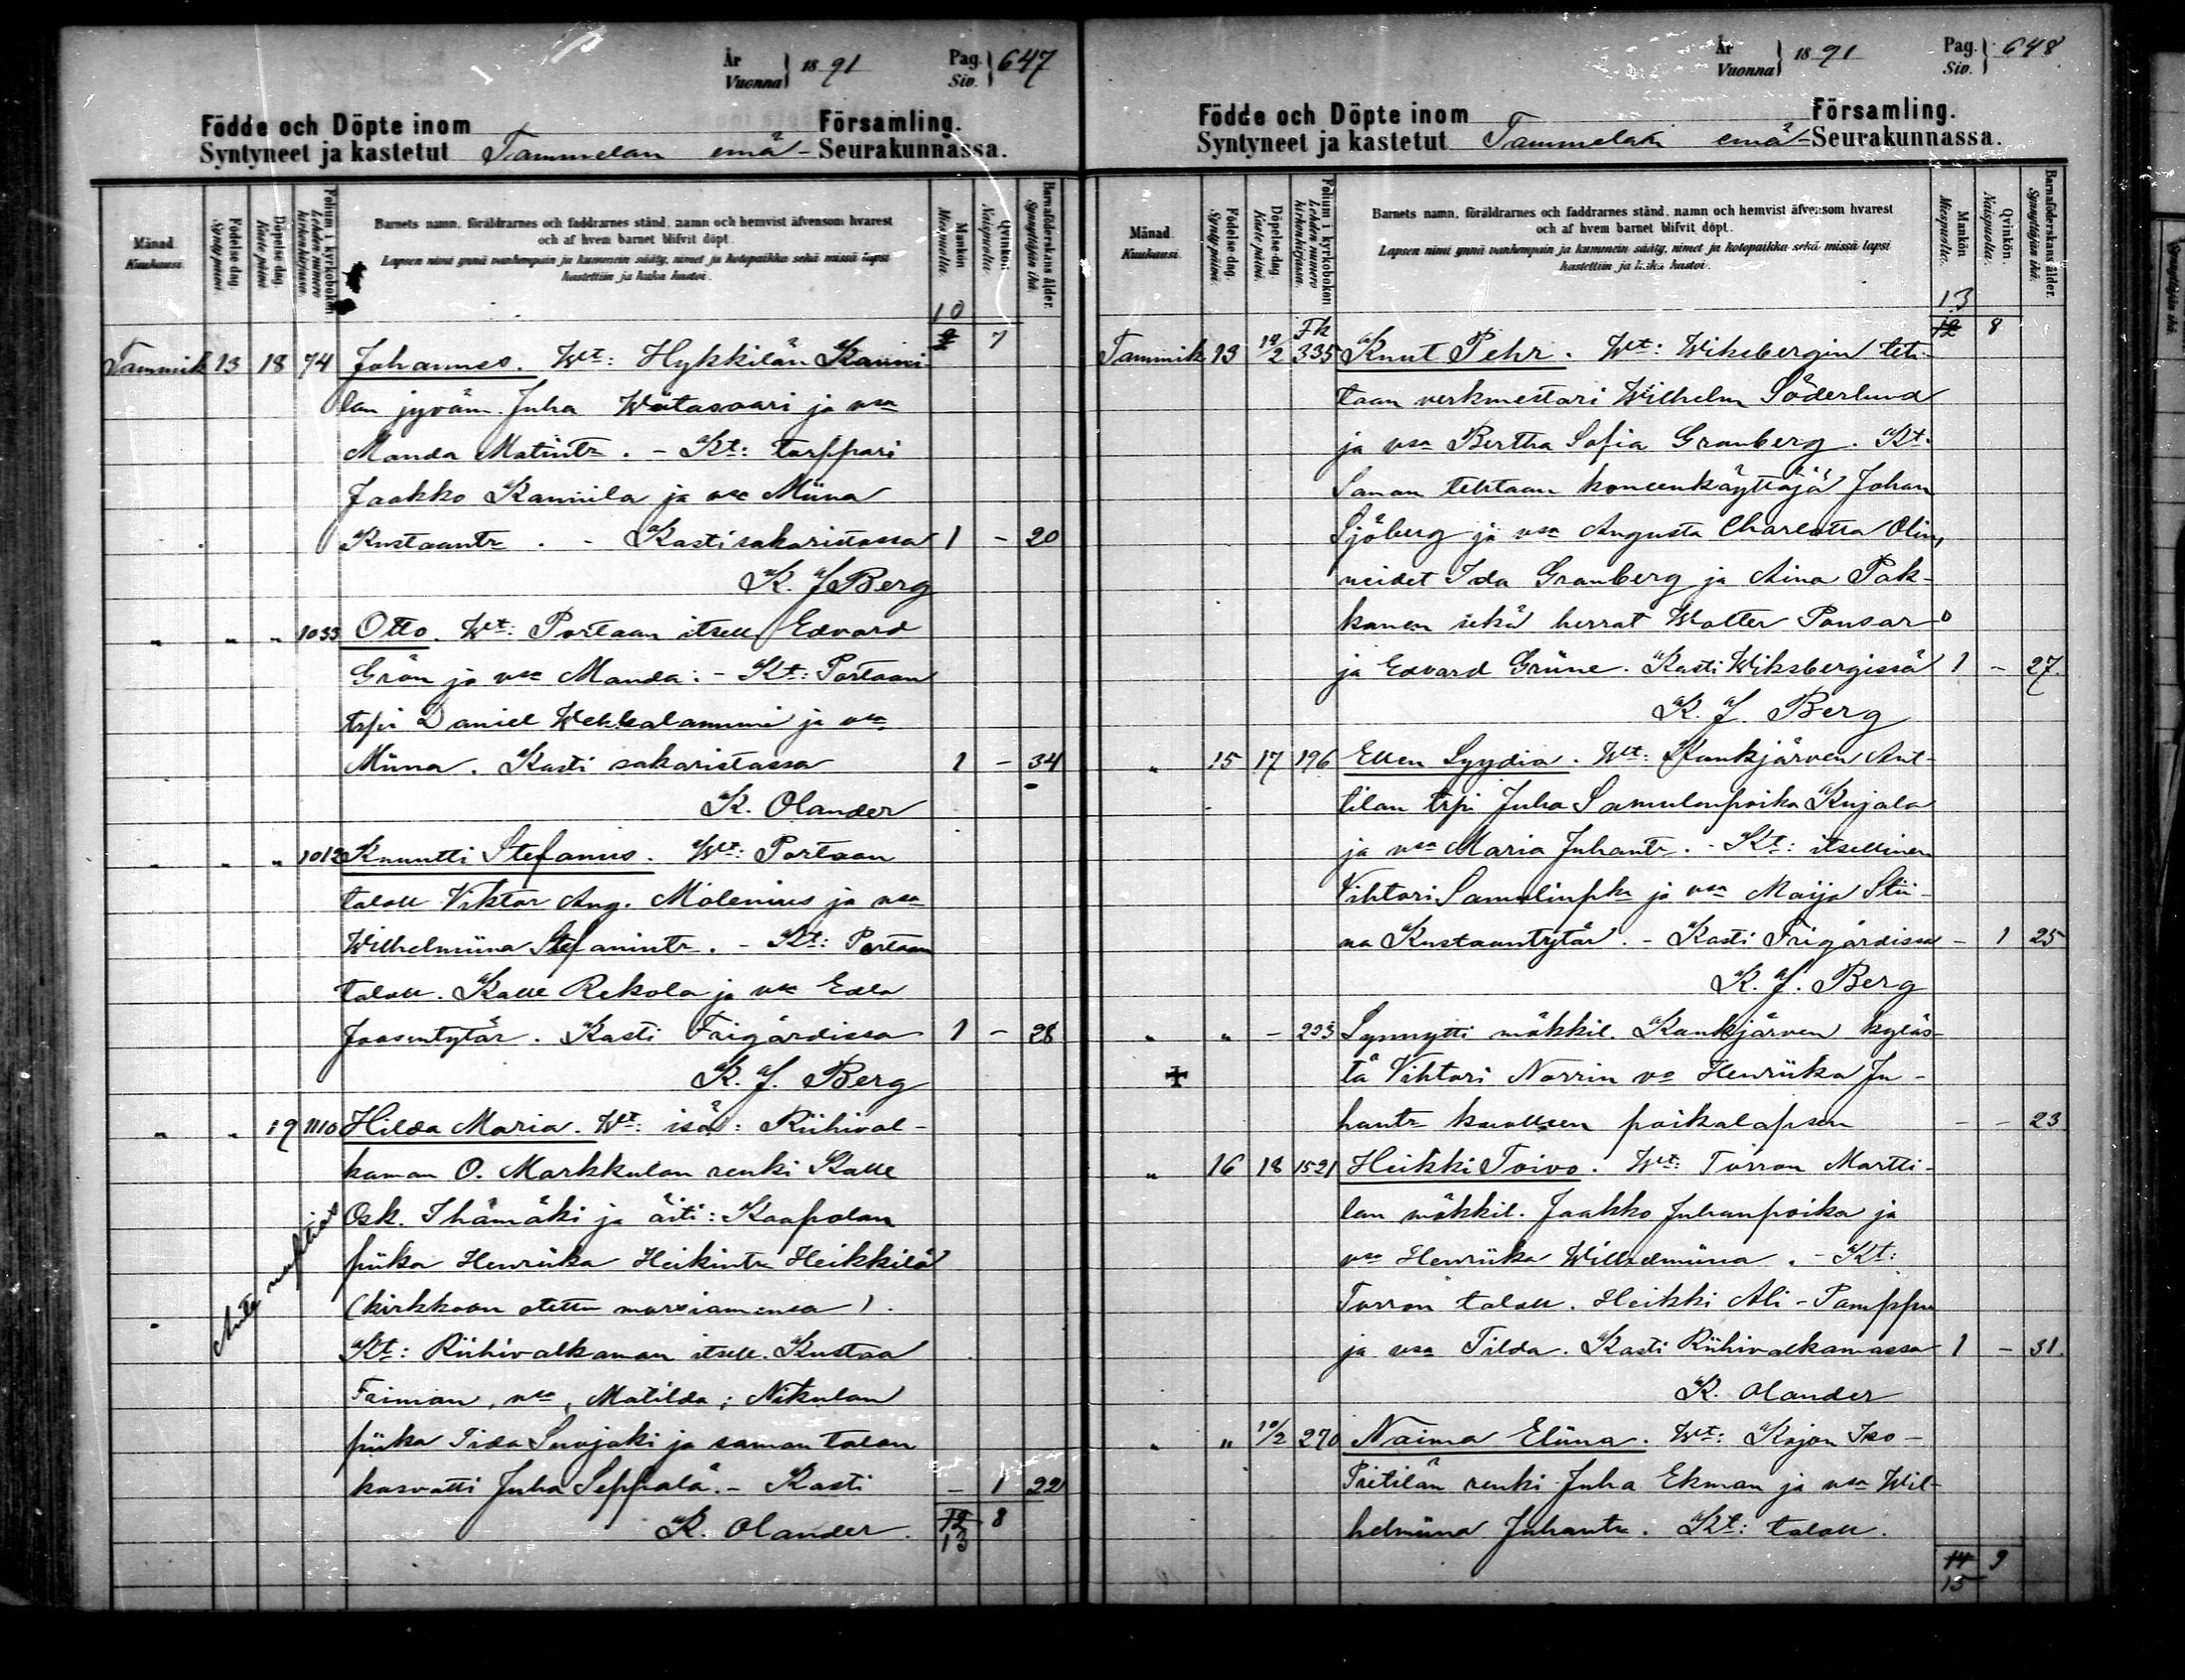 År
Vuonna } 1891
Pag.
Siv. } 647
Födde och Döpte inom
Församling.
Syntyneet ja kastetut Tammelan emä- Seurakunnassa.
Månad
Kuukausi.
Födelse dag.
Syntypäivä.
Döpelse dag.
Kaste päivä
Folium i kyrkoboken
Lehden numero
kirkonkirjassa.
Barnets namn, föräldrarnes och faddrarnes stånd, namn och hemvist äfvensom hvarest
och af hvem barnet blifvit döpt.
Lapsen nimi ynnä vanhempain ja kummein sääty, nimet ja kotopaikka sekä missä lapsi
kastettiin ja kuka kastoi.
Mankön
Miespuolta.
Qvinkön.
Naispuolta.
Barnaföderskans ålder.
Synnyttäjän ikä.
10
7
Tammik 13 18 74 Johannes. Wt: Hykkilän Kanni-
lan jyväm. Juha Wätasaari ja vsa
Manda Matintr. - Kt: torppari
Jaakko Kannila ja vsa Miina
Kustaantr. - Kasti sakaristassa 1 - 20
K. J Berg
" " " 1033 Otto. Wt: Portaan itsell Edvard
Grön ja vsa Manda: - Kt: Portaan
trpi Daniel Wehkalammi ja vsa
Miina. Kasti sakaristassa 1 - 34
K. Olander
" " " 1012 Knuutti Stefanus. Wt: Portaan
taloll Viktor Aug. Molenius ja vsa
Wilhelmiina Stefanintr. - Kt: Portaan
taloll. Kalle Rekola ja vsa Edla
Joosentytär. Kasti Frigårdissa 1 - 28
K. J. Berg
" " 19 1110 Hilda Maria. Wt: isä: Riihival-
kaman O. Markkulan renki Kalle
Osk. Ihämäki ja äiti: Kaapolan
piika Henriika Heikintr Heikkilä
(kirkkoon otettu morsiamensa).
Kt: Riihivalkaman itsell. Kustaa
Faiman, vsa, Matilda; Nikulan
piika Iida Suojaki ja saman talon
kasvatti Juha Seppälä. - Kasti - 1 22
K. Olander. 12 8
13
År
Vuonna } 1891
Pag.
Siv. } 648
Födde och Döpte inom
Församling.
Syntyneet ja kastetut Tammelan emä- Seurakunnassa.
Månad
Kuukausi.
Födelse-dag.
Syntypäivä.
Döpelse-dag.
Kaste päivä.
Folium i kyrkoboken
Lehden numero
kirkonkirjassa.
Barnets namn, föräldrarnes och faddrarnes stånd, namn och hemvist äfvensom hvarest
och af hvem barnet blifvit döpt.
Lapsen nimi ynnä vanhempain ja kummein sääty, nimet ja kotopaikka sekä missä lapsi
kastettiin ja kuka kastoi.
Mankön
Miespuolta.
Qvinkön.
Naispuolta.
Barnaföderskans ålder.
Synnyttäjän ikä.
13
12 8
Fk
Tammik 13 335 Knut Pehr. Wt: Wiksbergin teh-
taan verkmestari Wilhelm Söderlund
ja vsa Bertha Sofia Granberg. Kt.
Saman tehtaan koneenkäyttäjä Johan
Sjöberg ja vsa Augusta Charlotta Olin,
neidet Ida Granberg ja Aina Pak-
kanen sekä herrat Wolter Ponsar
ja Edvard Grüne. Kasti Wiksbergissä 1 - 27.
K. J. Berg
" 15 17 196 Ellen Lyydia. Wt: Kaukjärven Ant-
tilan trpi Juha Samulonpoika Kujala
ja vsa Maria Juhantr. - Kt: itsellinen
Vihtori Samulinpk ja vsa Maija Stii-
na Kustaantytär. - Kasti Frigårdissa - 1 25
K. J. Berg
" " - 223 Synnytti mäkkil. Kaukjärven kyläs-
tä Vihtori Norrin vo Henriika Ju-
hantr kuolleen poikalapsen - - 23
" 16 18 1521 Heikki Toivo. Wt: Torron Martti-
lan mäkkil. Jaakko Juhanpoika ja
vsa Henriika Wilhelmiina. - Kt:
Torron taloll. Heikki Ali-Pamppu
ja vsa Tilda. Kasti Riihivalkamassa 1 - 31.
K. Olander
" " 10/2 270 Naima Eliina. Wt: Kojon Iso-
Pietilän renki Juha Ekman ja vsa Wil-
helmiina Juhantr. Kt: taloll.
14 9
15